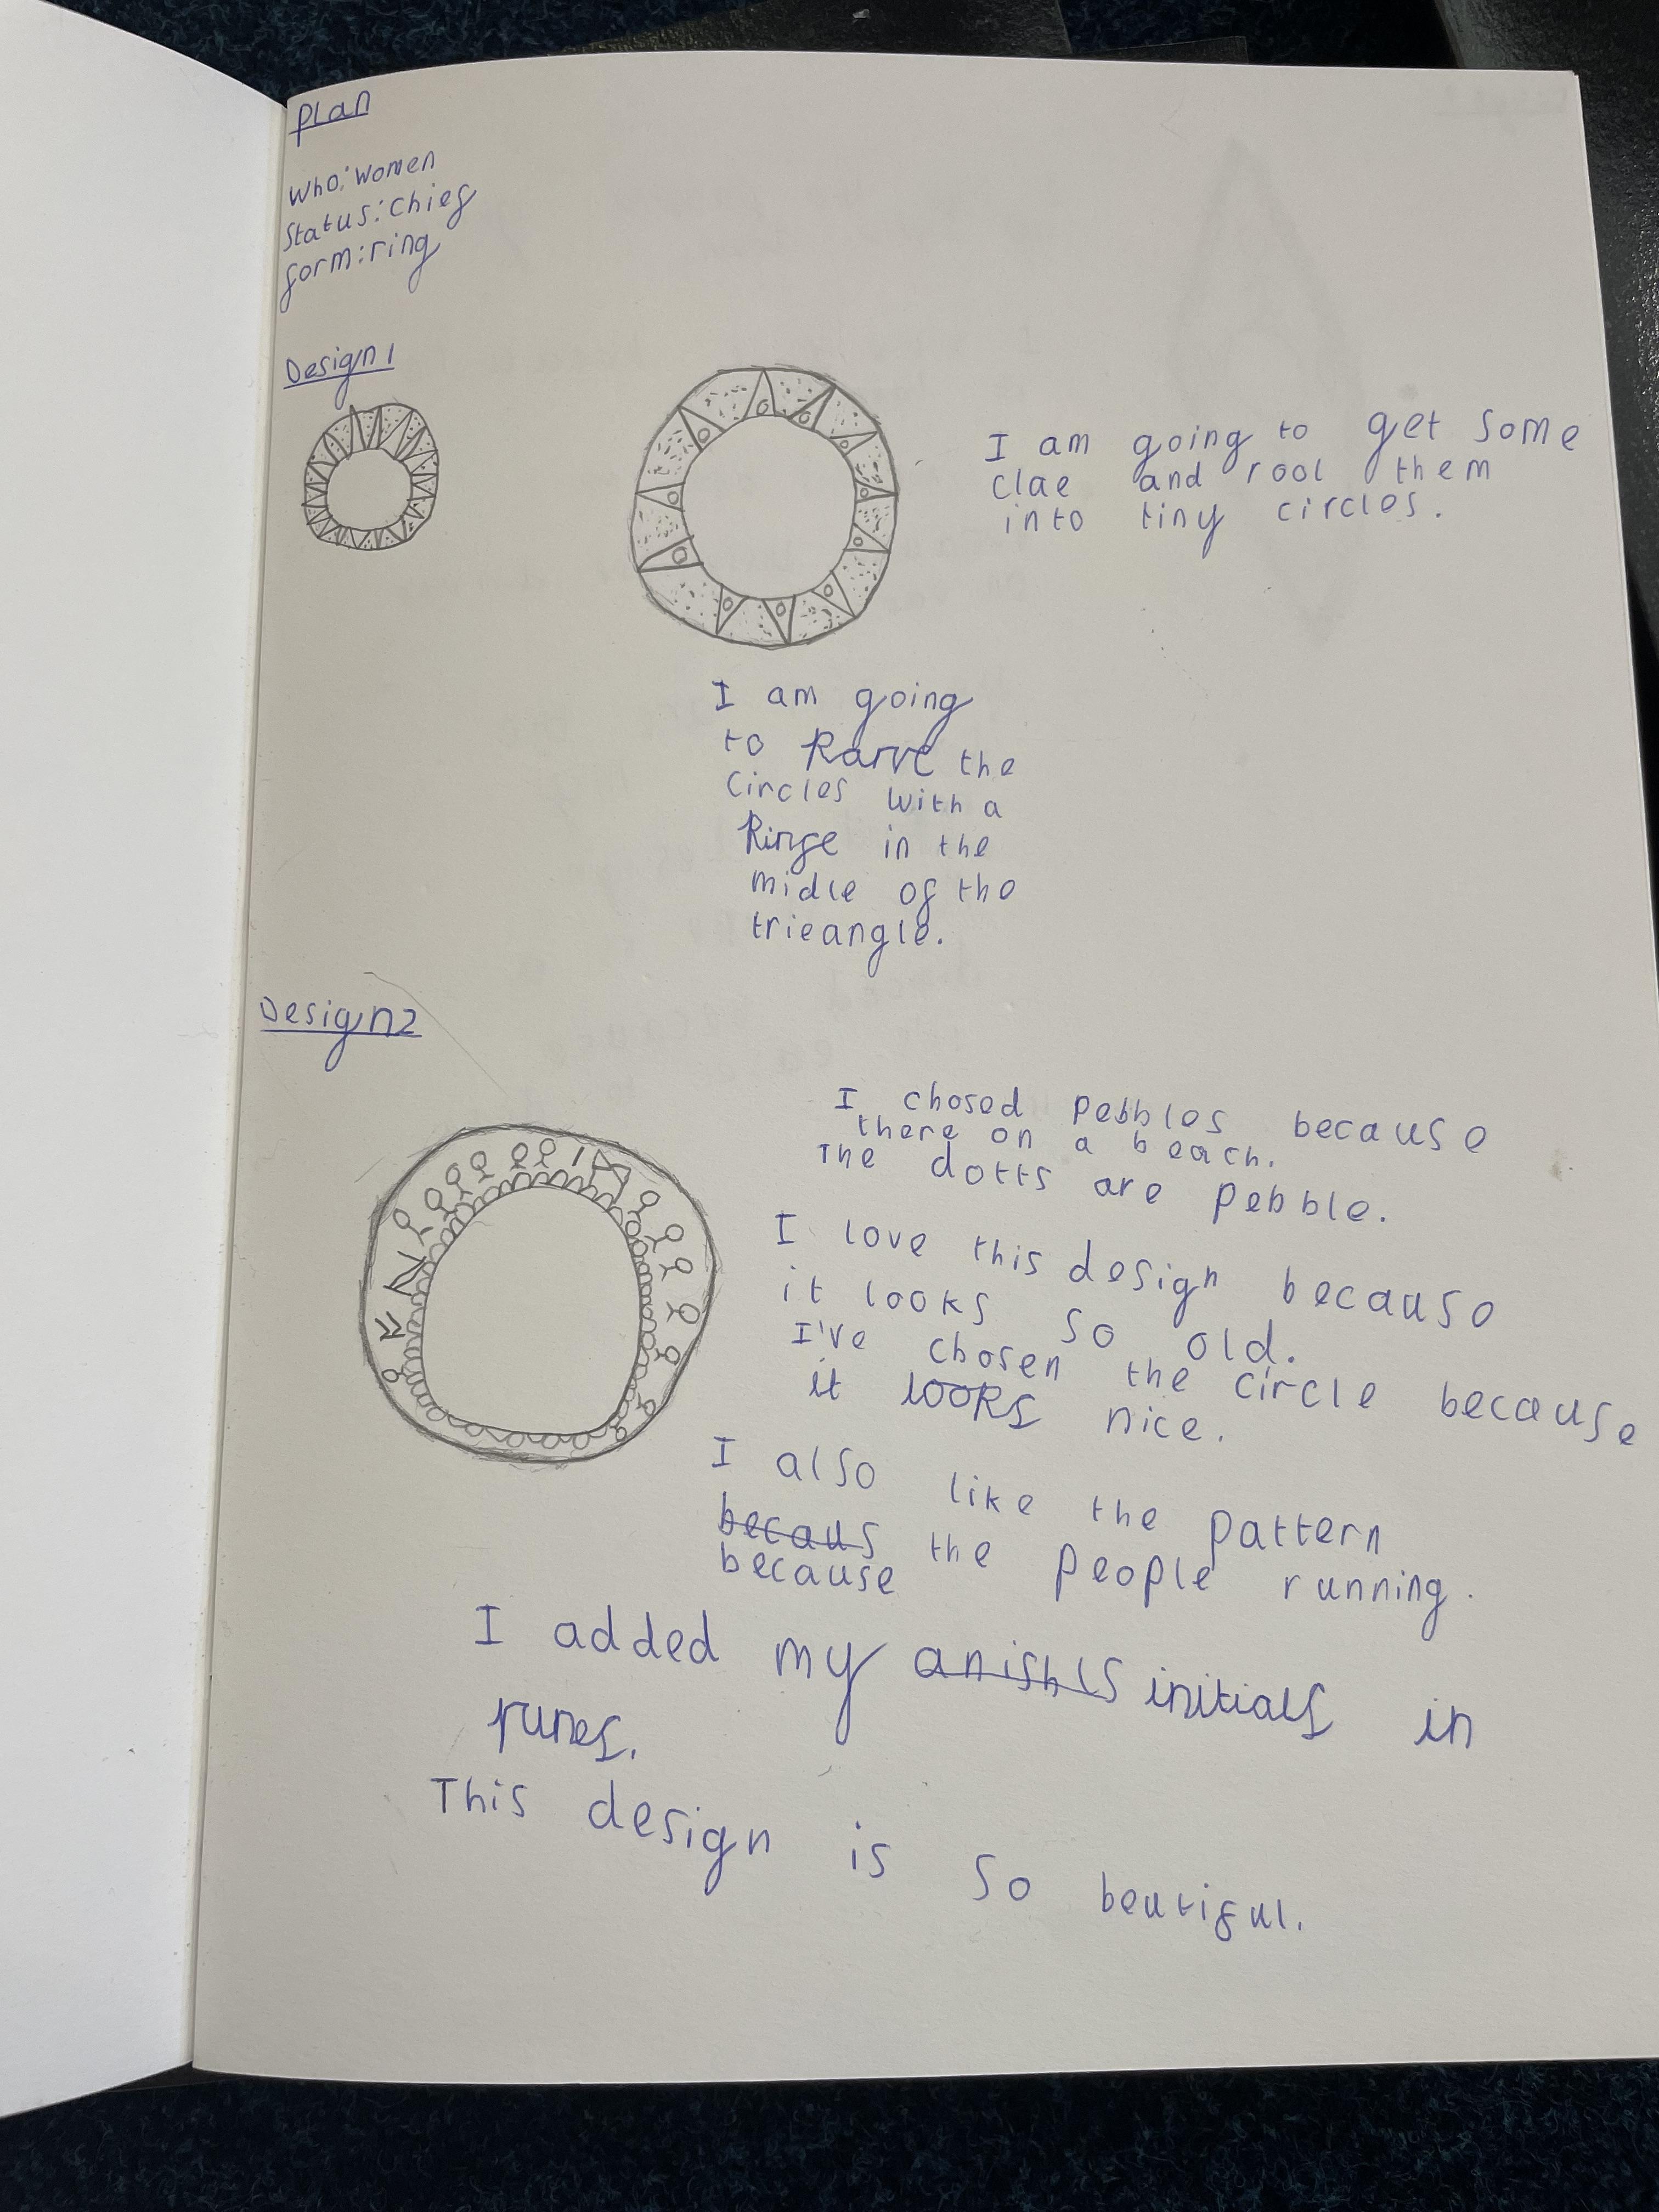 Plan
Who: Women
Status: Chief
form: ring
Design 1
I am going to get some
clae and rool them
into tiny circles.
I am going
to Karve the
Circles with a
in the
midle of the
trieangle.
Design 2
I chosed pebbles because
there on a beach.
The dotts are pebble.
I love this design because
it looks so old.
I've chosen the circle because
it looks nice.
I also like the pattern
becaus the people running.
because
I added my anishls initials in
runes.
This design is so beutiful.